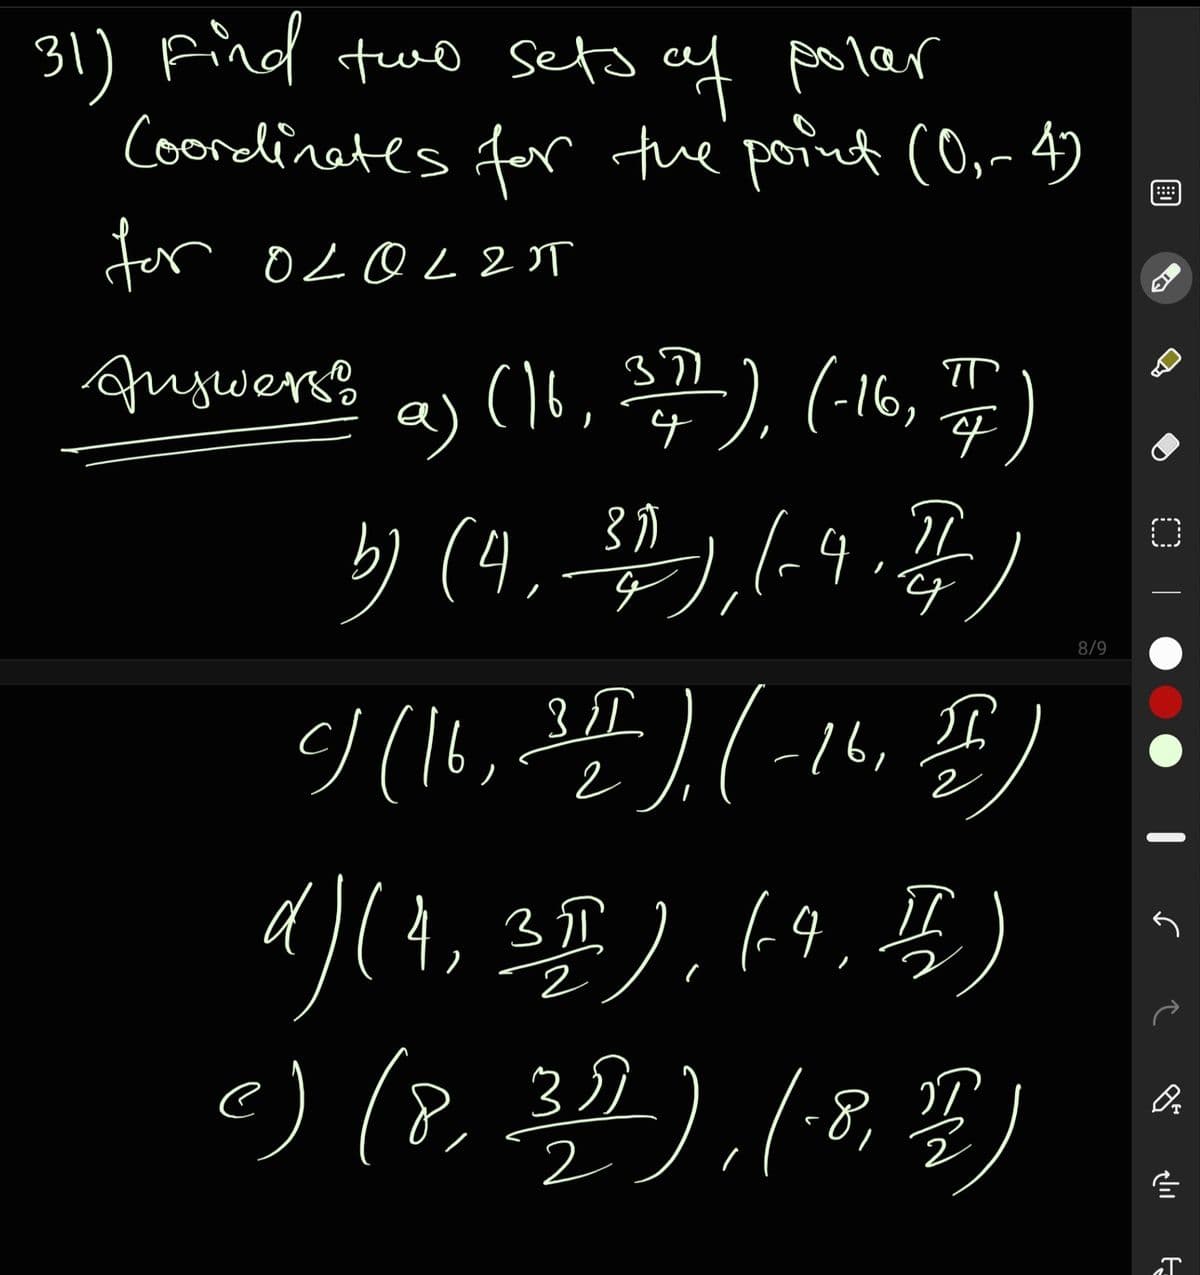 31) Find two sets of polar
Coordinates for the point (0,-4)
for 0<θ<2π
Answers: a) (16, 3π/4), (-16, π/4)
b) (4, 3π/4), (-4, π/4)
8/9
c) (16, 3π/2), (-16, π/2)
d) (4, 3π/2), (-4, π/2)
e) (8, 3π/2), (-8, π/2)